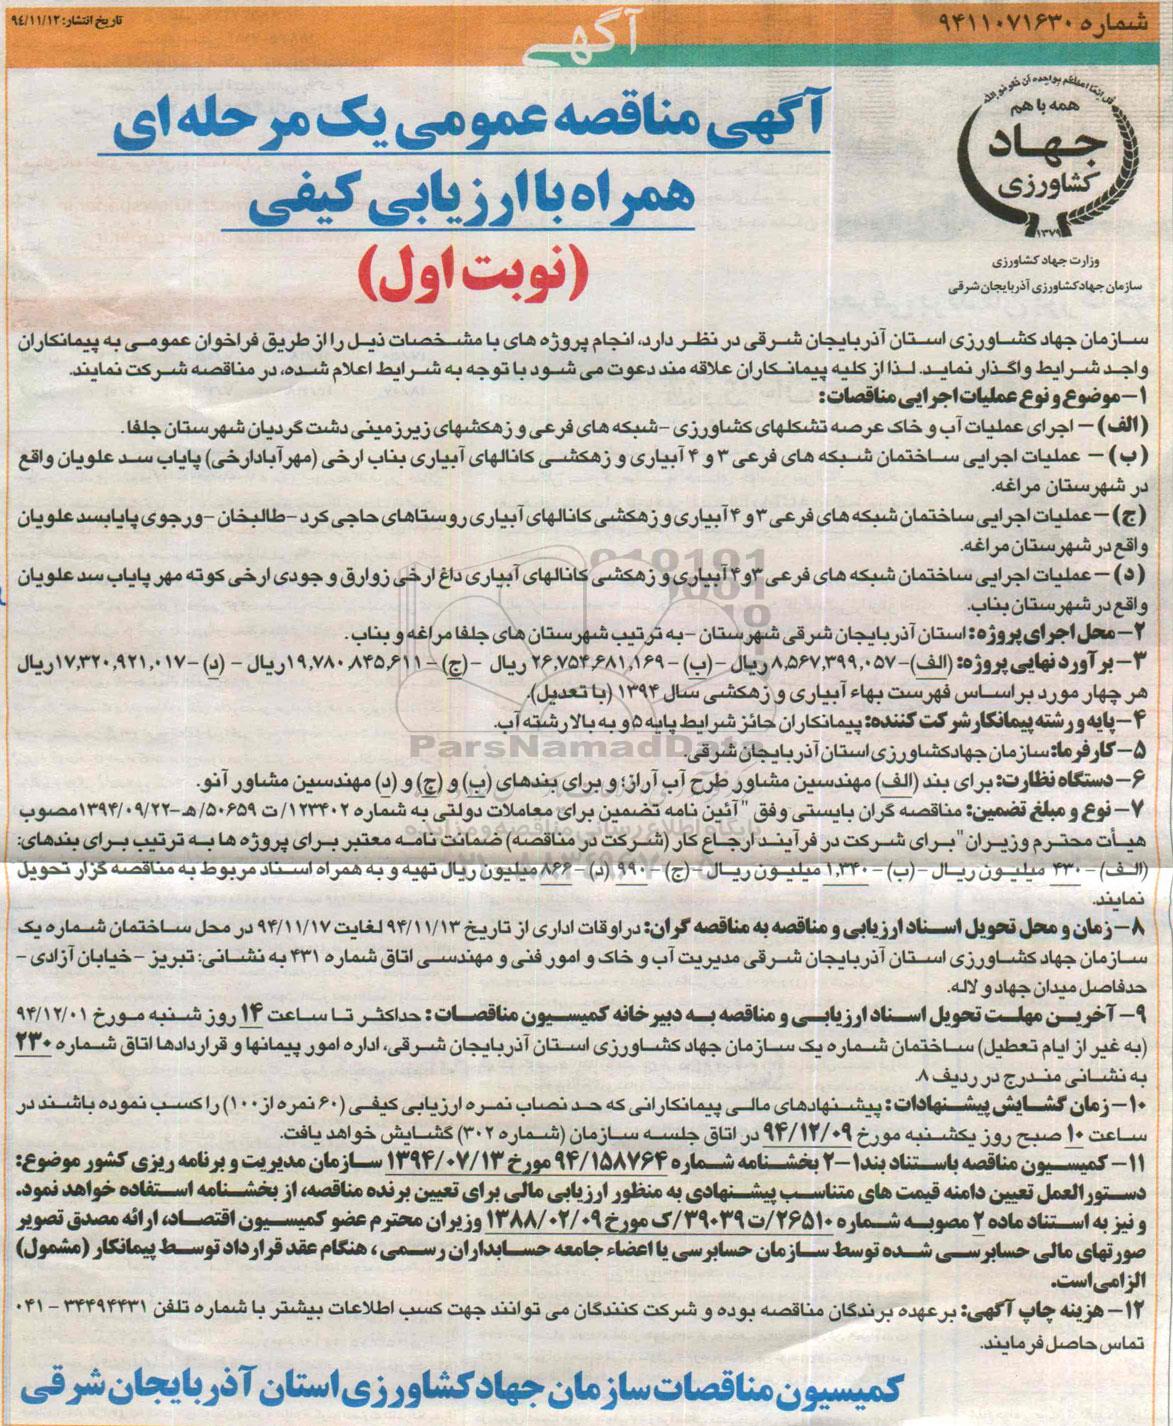 شماره ۹۴۱۱۰۷۱۶۳۰
آگهی
تاریخ انتشار: ۹۴/۱۱/۱۲
همه با هم
جهاد
کشاورزی
۱۳۷۹
وزارت جهاد کشاورزی
سازمان جهاد کشاورزی آذربایجان شرقی
آگهی مناقصه عمومی یک مرحله ای
همراه با ارزیابی کیفی
(نوبت اول)
سازمان جهاد کشاورزی استان آذربایجان شرقی در نظر دارد، انجام پروژه های با مشخصات ذیل را از طریق فراخوان عمومی به پیمانکاران
واجد شرایط واگذار نماید. لذا از کلیه پیمانکاران علاقه مند دعوت می شود با توجه به شرایط اعلام شده، در مناقصه شرکت نمایند.
۱-موضوع و نوع عملیات اجرایی مناقصات:
(الف)- اجرای عملیات آب و خاک عرصه تشکلهای کشاورزی -شبکه های فرعی و زهکشهای زیرزمینی دشت گردیان شهرستان جلفا.
(ب)- عملیات اجرایی ساختمان شبکه های فرعی ۳ و ۴ آبیاری و زهکشی کانالهای آبیاری بناب ارخی (مهرآباد ارخی) پایاب سد علویان واقع
در شهرستان مراغه.
(ج)-عملیات اجرایی ساختمان شبکه های فرعی ۳ و ۴ آبیاری و زهکشی کانالهای آبیاری روستاهای حاجی کرد-طالبخان-ورجوی پایابسد علویان
واقع در شهرستان مراغه.
(د)-عملیات اجرایی ساختمان شبکه های فرعی ۳و۴ آبیاری و زهکشی کانالهای آبیاری داغ ارخی زوارق و جودی ارخی کوته مهر پایاب سد علویان
واقع در شهرستان بناب.
۲-محل اجرای پروژه: استان آذربایجان شرقی شهرستان -به ترتیب شهرستان های جلفا مراغه و بناب.
۳-برآورد نهایی پروژه: (الف)-۸,۵۶۷,۳۹۹,۰۵۷ ریال -(ب)-۲۶,۷۵۴,۶۸۱,۱۶۹ ریال -(ج)-۱۹,۷۸۰,۸۴۵,۶۱۱ریال -(د)-۱۷,۳۲۰,۹۲۱,۰۱۷ریال
هر چهار مورد براساس فهرست بهاء آبیاری و زهکشی سال ۱۳۹۴ (با تعدیل).
۴-پایه و رشته پیمانکار شرکت کننده: پیمانکاران حائز شرایط پایه ۵ و به بالا رشته آب.
۵-کارفرما: سازمان جهادکشاورزی استان آذربایجان شرقی.
۶-دستگاه نظارت: برای بند (الف) مهندسین مشاور طرح آب آراز؛ و برای بندهای (ب) و (ج) و (د) مهندسین مشاور آنو.
۷-نوع و مبلغ تضمین: مناقصه گران بایستی وفق "آئین نامه تضمین برای معاملات دولتی به شماره ۱۲۳۴۰۲/ت ۵۰۶۵۹/هـ-۱۳۹۴/۰۹/۲۲مصوب
هیأت محترم وزیران" برای شرکت در فرآیند ارجاع کار (شرکت در مناقصه) ضمانت نامه معتبر برای پروژه ها به ترتیب برای بندهای:
(الف)-۴۳۰ میلیون ریال -(ب)-۱,۳۴۰ میلیون ریال -(ج)-۹۹۰ (د)-۸۶۶ میلیون ریال تهیه و به همراه اسناد مربوط به مناقصه گزار تحویل
نمایند.
۸-زمان و محل تحویل اسناد ارزیابی و مناقصه به مناقصه گران: در اوقات اداری از تاریخ ۹۴/۱۱/۱۳ لغایت ۹۴/۱۱/۱۷ در محل ساختمان شماره یک
سازمان جهاد کشاورزی استان آذربایجان شرقی مدیریت آب و خاک و امور فنی و مهندسی اتاق شماره ۴۳۱ به نشانی: تبریز -خیابان آزادی -
حدفاصل میدان جهاد و لاله.
۹-آخرین مهلت تحویل اسناد ارزیابی و مناقصه به دبیرخانه کمیسیون مناقصات: حداکثر تا ساعت ۱۴ روز شنبه مورخ ۹۴/۱۲/۰۱
(به غیر از ایام تعطیل) ساختمان شماره یک سازمان جهاد کشاورزی استان آذربایجان شرقی، اداره امور پیمانها و قراردادها اتاق شماره ۲۳۰
به نشانی مندرج در ردیف ۸.
۱۰-زمان گشایش پیشنهادات: پیشنهادهای مالی پیمانکارانی که حد نصاب نمره ارزیابی کیفی (۶۰ نمره از ۱۰۰) را کسب نموده باشند در
ساعت ۱۰ صبح روز یکشنبه مورخ ۹۴/۱۲/۰۹ در اتاق جلسه سازمان (شماره ۳۰۲) گشایش خواهد یافت.
۱۱-کمیسیون مناقصه باستناد بند۱-۲ بخشنامه شماره ۹۴/۱۵۸۷۶۴ مورخ ۱۳۹۴/۰۷/۱۳ سازمان مدیریت و برنامه ریزی کشور موضوع:
دستورالعمل تعیین دامنه قیمت های متناسب پیشنهادی به منظور ارزیابی مالی برای تعیین برنده مناقصه، از بخشنامه استفاده خواهد نمود.
و نیز به استناد ماده ۲ مصوبه شماره ۲۶۵۱۰/ت ۳۹۰۳۹/ک مورخ ۱۳۸۸/۰۲/۰۹ وزیران محترم عضو کمیسیون اقتصاد، ارائه مصدق تصویر
صورتهای مالی حسابرسی شده توسط سازمان حسابرسی یا اعضاء جامعه حسابداران رسمی، هنگام عقد قرارداد توسط پیمانکار (مشمول)
الزامی است.
۱۲-هزینه چاپ آگهی: برعهده برندگان مناقصه بوده و شرکت کنندگان می توانند جهت کسب اطلاعات بیشتر با شماره تلفن ۳۴۴۹۴۴۳۱-۰۴۱
تماس حاصل فرمایند.
کمیسیون مناقصات سازمان جهاد کشاورزی استان آذربایجان شرقی
ParsNamadData